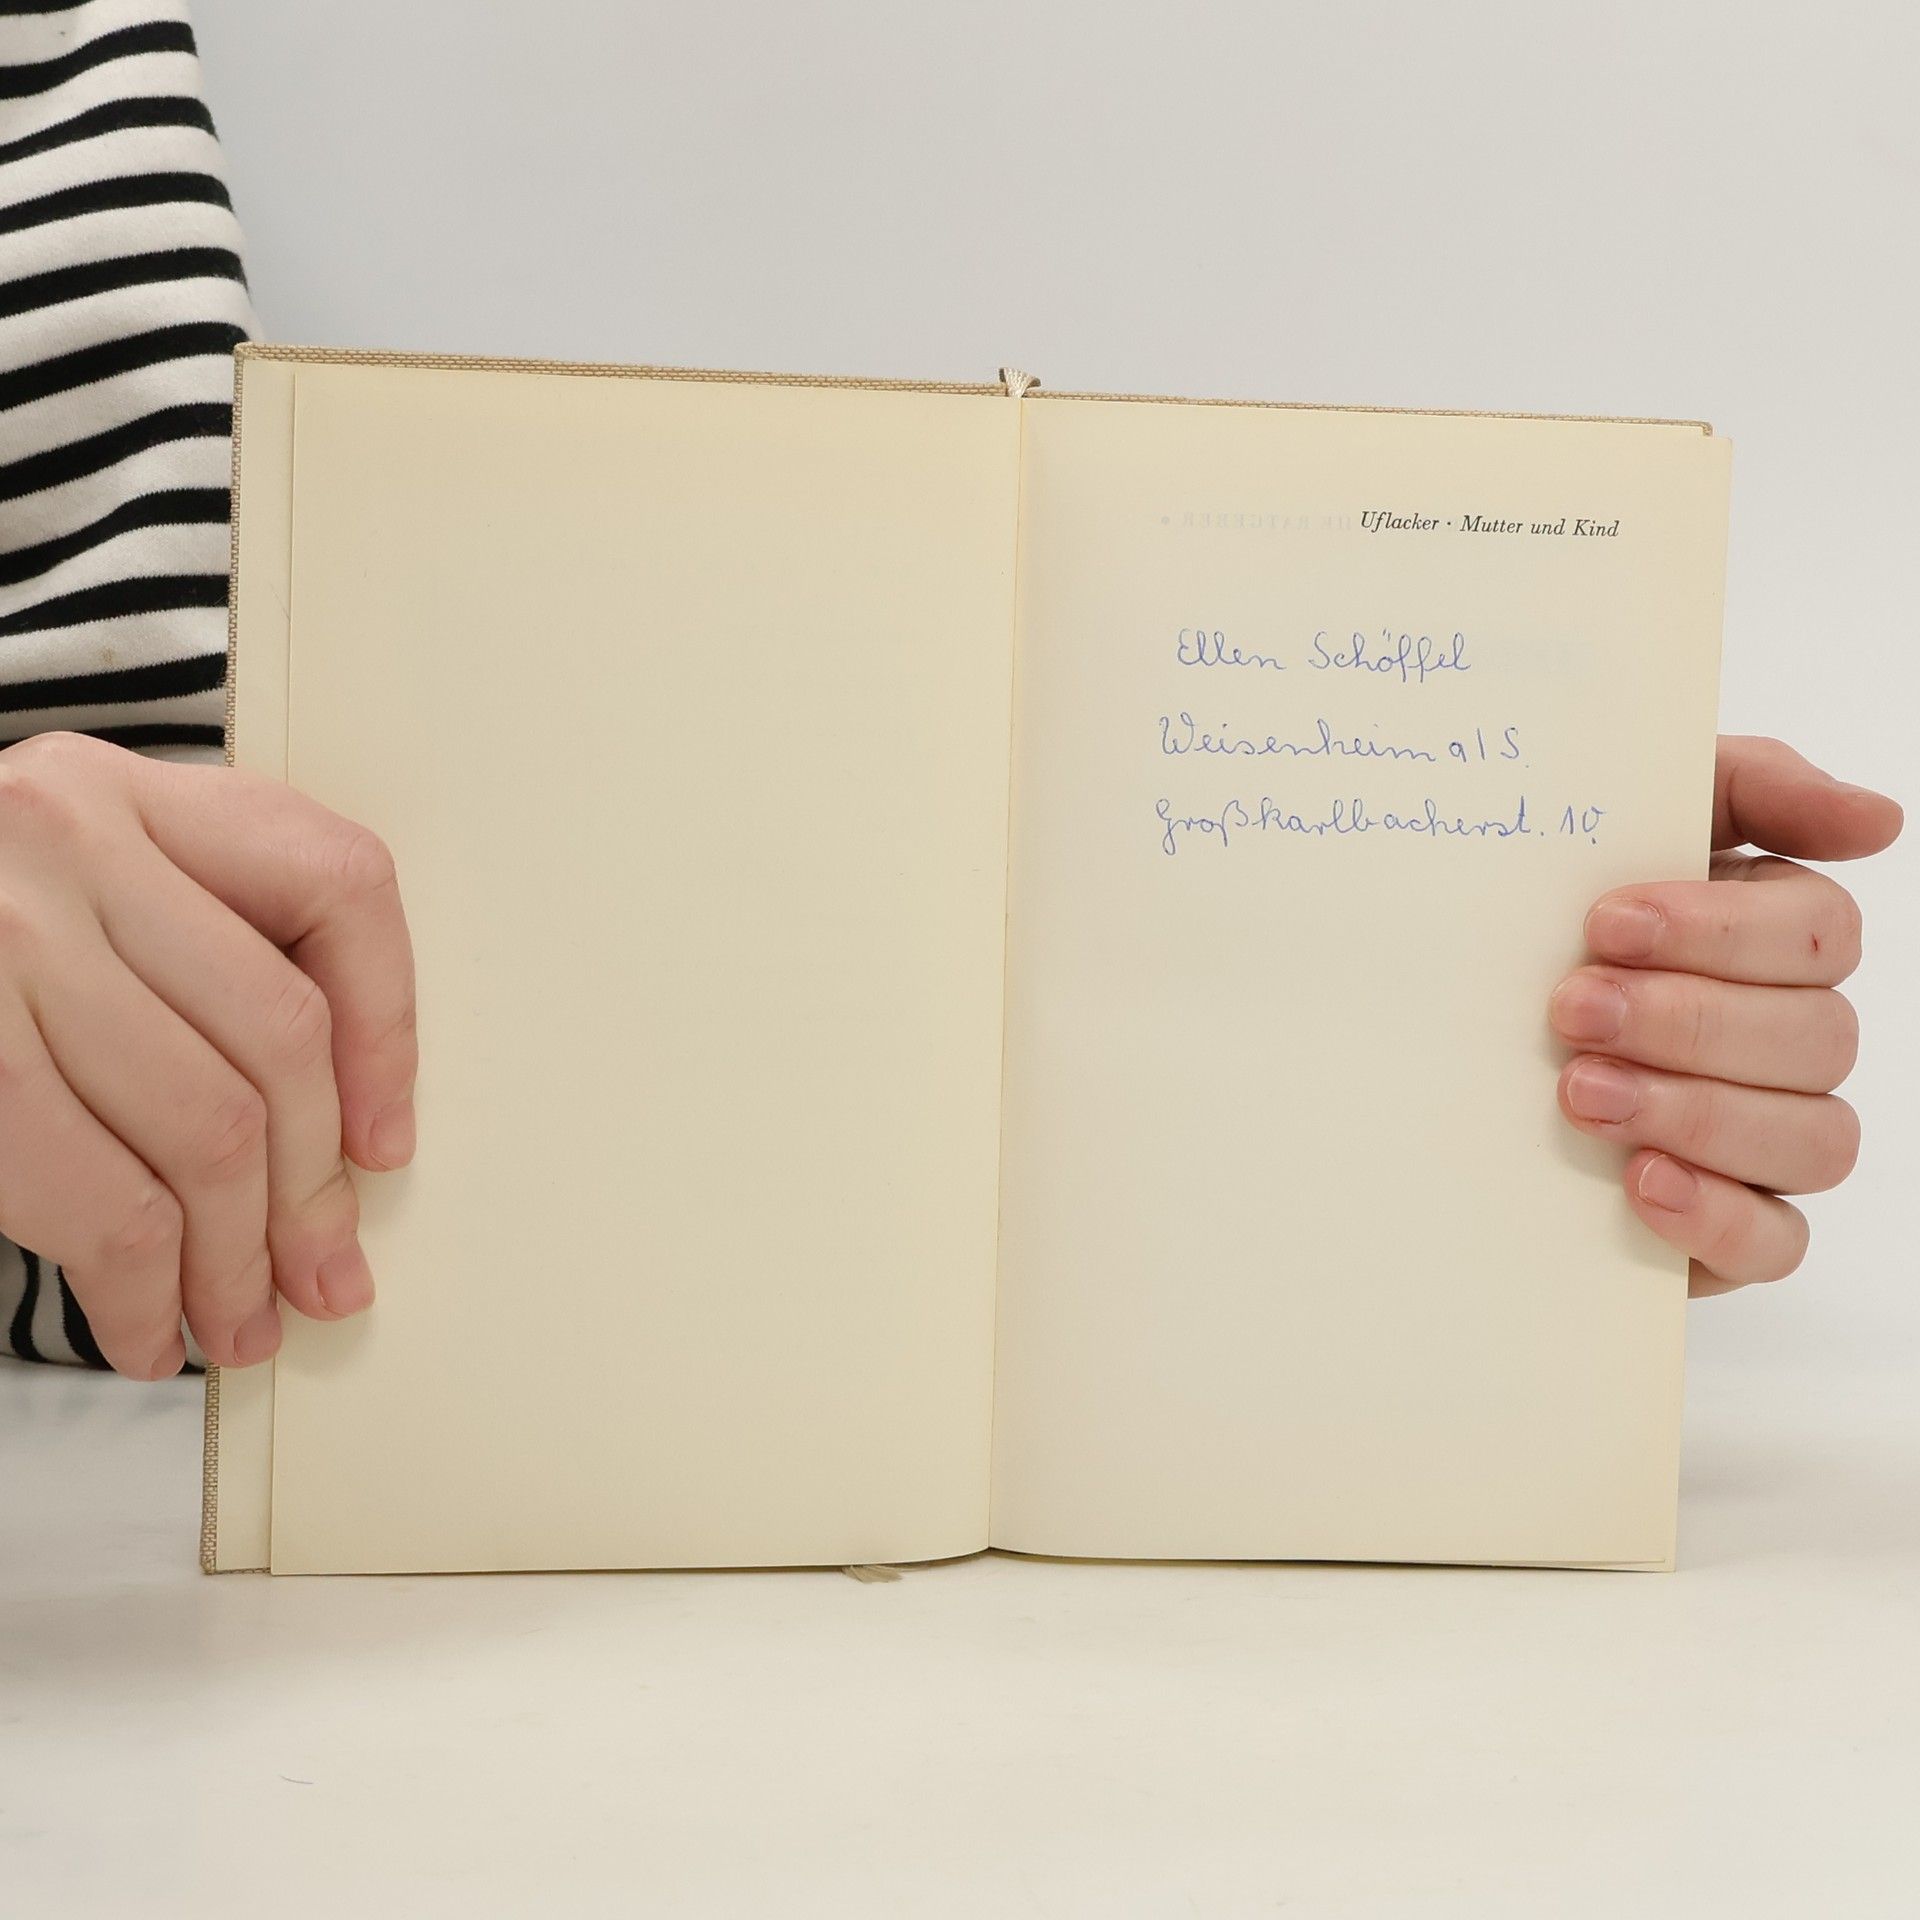 Uflacker · Mutter und Kind
Ellen Schöffel
Weisenheim a/S.
Großkarlbacherst. 10.